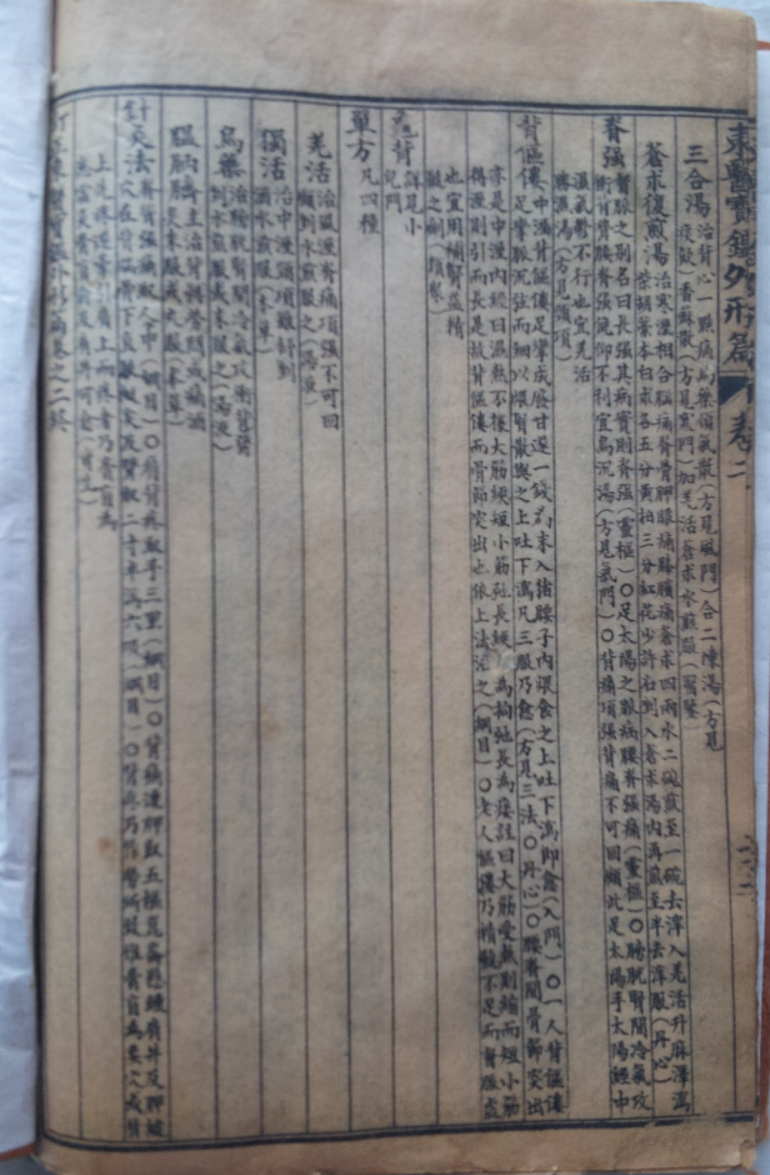 東醫寶鑑外形篇 卷二
三合湯 治背心一點痛烏藥順氣散(方見風門)合二陳湯(方見
痰飮)香蘇散(方見寒門)加羌活蒼朮水煎服(醫鑒)
蒼朮復煎湯 治寒濕相合腦痛脊骨胛眼痛膝臏痛蒼朮四兩水二碗煎至一碗去滓入羌活升麻澤瀉
柴胡藁本白朮各五分黃柏三分紅花少許右剉入蒼朮湯內再煎至半去滓服(丹心)
脊强 督脈之別名曰長强其病實則脊强(靈樞)○足太陽之脈病腰脊强痛(靈樞)○膀胱腎間冷氣攻
衝背膂腰脊强俛仰不利宜烏沉湯(方見氣門)○背痛項强背痛不可回顧此是太陽手太陽經中
濕氣鬱不行也宜羌活
勝濕湯(方見頸項)
背傴僂 中濕背傴僂足攣成廢甘遂一錢爲末入猪腰子內煨食之上吐下瀉卽愈(入門)○一人背傴僂
足攣脈沉弦而細以煨腎散與之上吐下瀉凡三服乃愈(方見三法)(丹心)○腰脊間骨節突出
亦是中濕內經曰濕熱不攘大筋緛短小筋弛長緛短爲拘弛長爲痿註曰大筋受熱則縮而短小筋
得濕則引而長是故背傴僂而骨節突出也依上法治之(綱目)○老人傴僂乃精髓不足而督脈虛
也宜用補腎益精
髓之劑(類聚)
龜背 詳見小
兒門
單方 凡四種
羌活 治風濕脊痛項强不可回
顧剉水煎服之(湯液)
獨活 治中濕頸項難舒剉
酒水煎服(本草)
烏藥 治膀胱腎間冷氣攻衝背膂
剉水煎服或末服之(湯液)
膃肭臍 主治背膊勞悶或痛酒
灸末服或丸服(本草)
針灸法 脊背强痛取人中(綱目)○肩背疼取手三里(綱目)○背痛連胛取五樞崑崙懸鍾肩井及胛縫
穴在背端骨下直腋縫尖及臂取二寸半瀉六吸(綱目)○背疼乃作勞所致惟膏肓爲要穴或背
上先疼遂牽引肩上而疼者乃膏肓爲
患當灸膏肓兪及肩井可愈(資生)